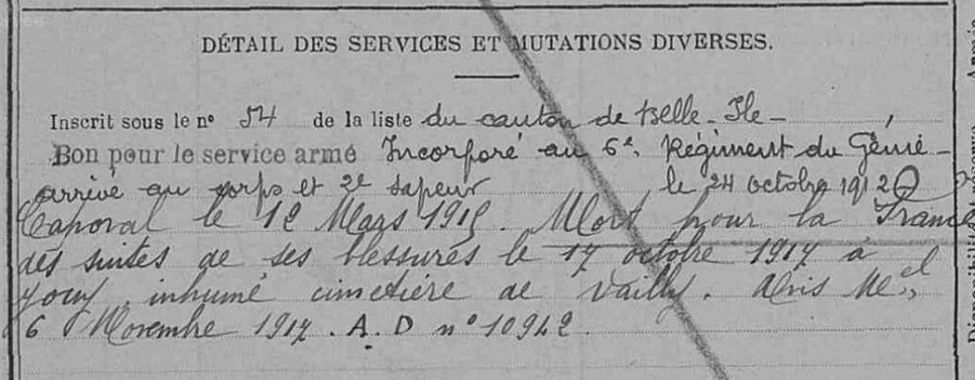 DÉTAIL DES SERVICES ET MUTATIONS DIVERSES.
Inscrit sous le n° 54 de la liste du canton de Belle-Ile-,
Bon pour le service armé Incorporé au 6e Régiment du Génie-
arrivé au corps et 2e sapeur le 24 octobre 1912
Caporal le 12 Mars 1915. Mort pour la France
des suites de ses blessures le 17 octobre 1917 à
Jouy, inhumé cimetière de Vailly. Avis Mel
6 Novembre 1917. A. D n° 10942.